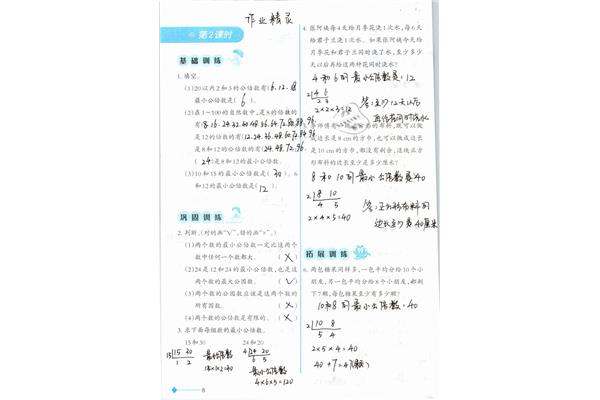 作业精灵
第2课时
基础训练
1. 填空。
(1)20以内2和3的公倍数有(6.12.18
最小公倍数是( 6 )。
(2)在1~100的自然数中,是8的倍数的
有8.16.24.32.40.48.56.64.72.80.88.96
是12的倍数的有12.24.36.48.60.72.84.96
是8和12的公倍数的有(24.48.72.96.
( 24 )是8和12的最小公倍数。
(3)10和15的最小公倍数是( 30 )。6
和12的最小公倍数是( 12 )。
巩固训练
2. 判断。(对的画"√",错的画"×"。)
(1)两个数的最小公倍数一定比这两个
数中任何一个数都大。 ( × )
(2)24是12和24的最小公倍数,也是这
两个数的最大公因数。 ( √ )
(3)两个数的公因数应该是这两个数的
所有因数。 ( × )
(4)两个数的公倍数是有限的。 ( × )
3. 求下面每组数的最小公倍数。
15和30 24和20
15 15 30 最小公倍数 4 24 20
1 2 6 5
最小公倍数
4×6×5=120
8
4. 张阿姨每4天给月季花浇1次水,每6天
给君子兰浇1次水。如果张阿姨今天给
月季花和君子兰同时浇了水,至少多少
天以后再给这两种花同时浇水?
4和6的最小公倍数是:12
2 4 6
2 3
2×2×3=12
答:至少12天以后
再给花同时浇水
布料的边长至少是多少厘米?
8和10的最小公倍数是40
2 8 10
4 5
2×4×5=40
答:正方形布料的
边长至少是40厘米
拓展训练
6. 两包糖果同样多,一包平均分给10个小
朋友,另一包平均分给8个小朋友,都剩
下7颗,每包糖果至少有多少颗?
10和8的最小公倍数=40
2 10 8
5 4
2×5×4=40
40+7=47(颗)